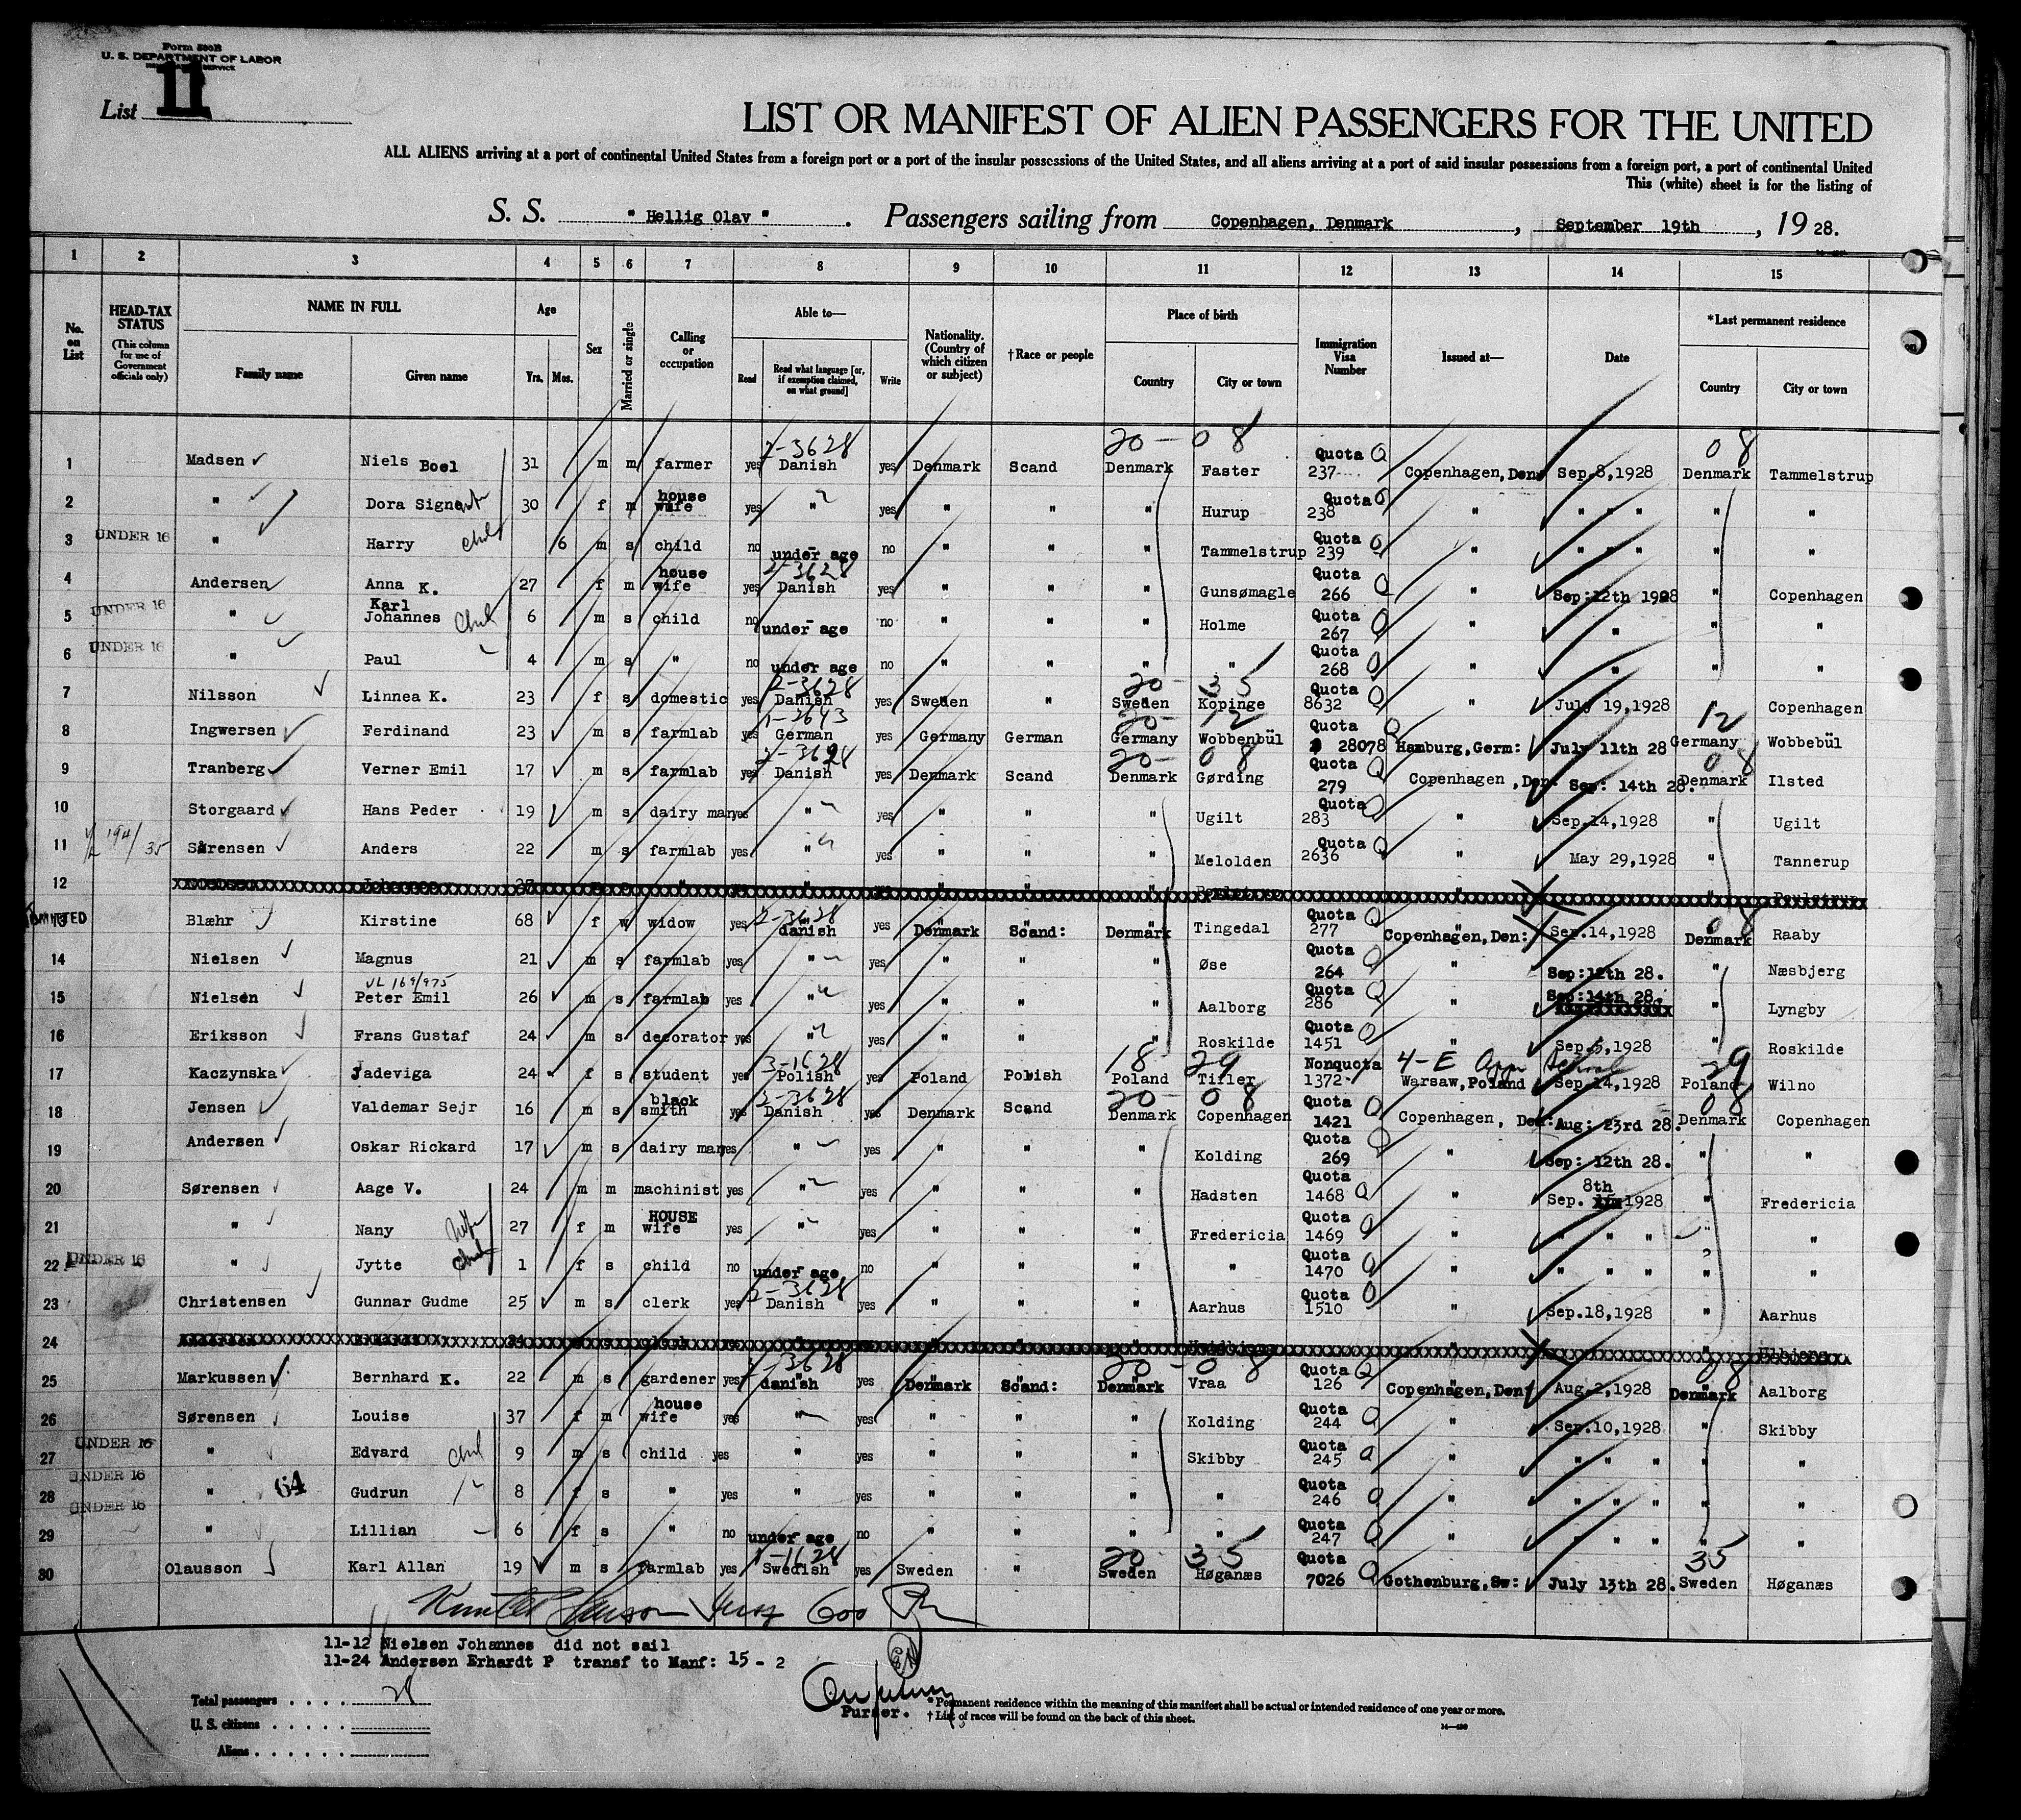 Form 500B
U. S. DEPARTMENT OF LABOR
List 11
LIST OR MANIFEST OF ALIEN PASSENGERS FOR THE UNITED
ALL ALIENS arriving at a port of continental United States from a foreign port or a port of the insular possessions of the United States, and all aliens arriving at a port of said insular possessions from a foreign port, a port of continental United
This (white) sheet is for the listing of
S. S. " Hellig Olav ". Passengers sailing from Copenhagen, Denmark, September 19th, 19 28.
1 2 3 4 5 6 7 8 9 10 11 12 13 14 15
No. on List
HEAD-TAX STATUS (This column for use of Government officials only)
NAME IN FULL Family name Given name
Age Yrs. Mos.
Sex
Married or single
Calling or occupation
Able to— Read Read what language [or, if exemption claimed, on what ground] Write
Nationality. (Country of which citizen or subject)
†Race or people
Place of birth Country City or town
Immigration Visa Number
Issued at—
Date
*Last permanent residence Country City or town
2-3628 20-08 08
1 Madsen Niels Boel 31 m m farmer yes Danish yes Denmark Scand Denmark Faster Quota 237 Copenhagen, Den Sep.8,1928 Denmark Tammelstrup
2 " Dora Signe 30 f m house wife yes " yes " " " Hurup Quota 238 " " " " " "
3 UNDER 16 " Harry child 6 m s child no under age no " " " Tammelstrup Quota 239 " " " " " "
2-3628
4 Andersen Anna K. 27 f m house wife yes Danish yes " " " Gunsømagle Quota 266 " Sep:12th 1928 " Copenhagen
5 UNDER 16 " Karl Johannes 6 m s child no under age no " " " Holme Quota 267 " " " "
6 UNDER 16 " Paul 4 m s " no under age no " " " " Quota 268 " " " "
2-3628 20-35
7 Nilsson Linnea K. 23 f s domestic yes Danish yes Sweden " Sweden Kopinge Quota 8632 " July 19,1928 Copenhagen
1-2643 20-12 12
8 Ingwersen Ferdinand 23 m s farmlab yes German yes Germany German Germany Wobbenbül Quota 28078 Hamburg,Germ: July 11th 28 Germany Wobbebül
20-08 08
9 Tranberg Verner Emil 17 m s farmlab yes Danish yes Denmark Scand Denmark Gørding Quota 279 Copenhagen, Den. Sep: 14th 28. Denmark Ilsted
10 Storgaard Hans Peder 19 m s dairy man yes " yes " " " Ugilt Quota 283 " Sep.14,1928 " Ugilt
11 Sørensen Anders 22 m s farmlab yes " yes " " " Melolden Quota 2636 " May 29,1928 " Tannerup
12
2-3628 08
13 Blæhr Kirstine 68 f w widow yes danish yes Denmark Scand: Denmark Tingedal Quota 277 Copenhagen,Den: Sep.14,1928 Denmark Raaby
14 Nielsen Magnus 21 m s farmlab yes " yes " " " Øse Quota 264 " Sep:12th 28. " Næsbjerg
15 Nielsen Peter Emil 26 m s farmlab yes " yes " " " Aalborg Quota 286 " Sep:14th 28. " Lyngby
16 Eriksson Frans Gustaf 24 m s decorator yes " yes " " " Roskilde Quota 1451 " Sep.5,1928 " Roskilde
3-1628 18 29 4-E 29
17 Kaczynska Jadeviga 24 f s student yes Polish yes Poland Polish Poland Nonquota 1372 Warsaw,Poland Sep.14,1928 Poland Wilno
2-3628 20-08 08
18 Jensen Valdemar Sejr 16 m s black smith yes Danish yes Denmark Scand Denmark Copenhagen Quota 1421 Copenhagen, Den: Aug: 23rd 28. Denmark Copenhagen
19 Andersen Oskar Rickard 17 m s dairy man yes " yes " " " Kolding Quota 269 " Sep: 12th 28. " "
20 Sørensen Aage V. 24 m m machinist yes " yes " " " Hadsten Quota 1468 " Sep. 8th 1928 " Fredericia
21 " Nany wife 27 f m HOUSE wife yes " yes " " " Fredericia Quota 1469 " " " " " "
22 UNDER 16 " Jytte child 1 f s child no under age no " " " " Quota 1470 " " " " " "
2-3628
23 Christensen Gunnar Gudme 25 m s clerk yes Danish yes " " " Aarhus Quota 1510 " Sep.18,1928 " Aarhus
24
2-3628 20-08 08
25 Markussen Bernhard K. 22 m s gardener yes danish yes Denmark Scand: Denmark Vraa Quota 126 Copenhagen,Den: Aug.2,1928 Denmark Aalborg
26 Sørensen Louise 37 f m house wife yes " yes " " " Kolding Quota 244 " Sep.10,1928 " Skibby
27 UNDER 16 " Edvard 9 m s child yes " yes " " " Skibby Quota 245 " " " " " "
28 UNDER 16 " Gudrun 8 f s " yes " yes " " " " Quota 246 " " " " " "
29 UNDER 16 " Lillian 6 f s " no under age no " " " " Quota 247 " " " " " "
1-1628 20 35 35
30 Olausson Karl Allan 19 m s farmlab yes Swedish yes Sweden " Sweden Høganæs Quota 7026 Gothenburg,Sw: July 13th 28. Sweden Høganæs
11-12 Nielsen Johannes did not sail
11-24 Andersen Erhardt P transf to Manf: 15 - 2
Total passengers 28
U. S. citizens
Aliens
Purser.
*Permanent residence within the meaning of this manifest shall be actual or intended residence of one year or more.
†List of races will be found on the back of this sheet.